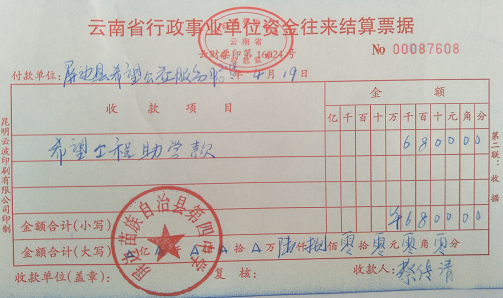 云南省行政事业单位资金往来结算票据
云南省
云财票印第16024号
No 00087608
付款单位:屏边县希望公益服务 年4月19日
收款项目
金额
亿千百十万千百十元角分
希望工程助学款
680000
金额合计(小写)
¥680000
金额合计(大写) 亿 仟 拾 万 陆仟捌佰零拾零元零角零分
收款单位(盖章):
复核:
收款人:
屏边苗族自治县第四中学
昆明云波印刷有限公司印制
第二联:收据